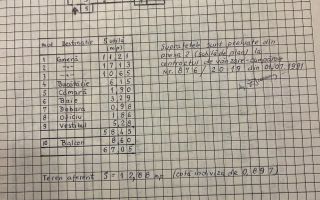 5
Nod Destinație S utilă
(mp)
1 Cameră 11,21
2 —"— 17,13
3 —"— 10,65
4 Bucătărie 6,15
5 Cămară 1,90
6 Baie 3,29
7 Debara 0,98
8 Oficiu 1,86
9 Vestibul 5,28
58,45
10 Balcon 8,60
67,05
Suprafețele sunt preluate din
anexa 2 (schița de plan) la
contractul de vânzare-cumpărare
Nr. 876/2019 din 01.07.1991
Teren aferent S = 12,88 mp (cotă indiviză de 0,897)